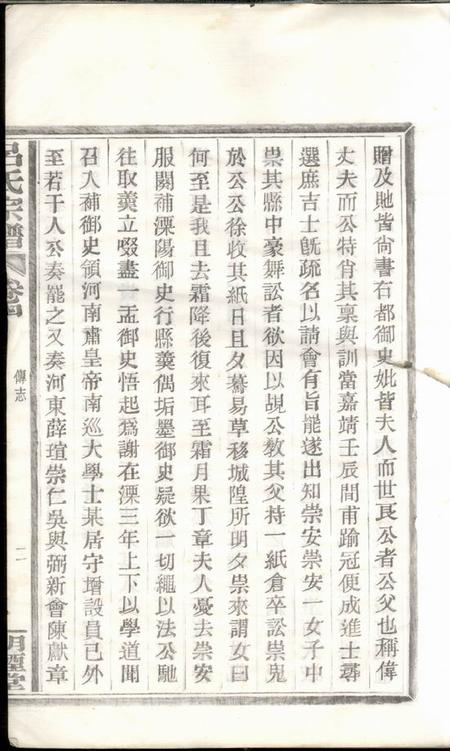 贈及貤皆尚書右都御史妣皆夫人而世艮公者公父也稱偉
丈夫而公特肖其稟與訓當嘉靖壬辰間甫踰冠便成進士尋
選庶吉士旣疏名以請會有旨罷遂出知崇安崇安一女子中
祟其縣中豪舞訟者欲因以覘公教其父持一紙倉卒訟祟鬼
於公公徐收其紙日且夕驀易草移城隍所明夕祟來謂女曰
何至是我且去霜降後復來耳至霜月果丁章夫人憂去崇安
服闋補溧陽御史行縣羹偶垢墨御史疑欲一切繩以法公馳
往取羹立啜盡一盂御史悟起爲謝在溧三年上下以學道聞
召入補御史領河南肅皇帝南巡大學士某居守增設員已外
至若干人公奏罷之又奏河東薛瑄崇仁吳與弼新會陳獻章
呂氏宗譜
卷
傳志
二
明煙堂